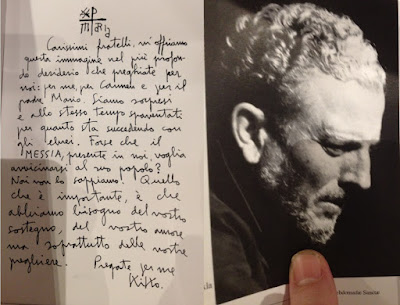 Carissimi fratelli, vi offriamo
questa immagine nel più profon-
do desiderio che preghiate per
noi: per me, per Carmen e per il
padre Mario. Siamo sorpresi
e allo stesso tempo spaventati
per quanto sta succedendo con
gli ebrei. Forse che il
MESSIA, presente in noi, voglia
avvicinarsi al suo popolo?
Noi non lo sappiamo! Quello
che è importante, è che
abbiamo bisogno del vostro
sostegno, del vostro amore
ma soprattutto delle vostre
preghiere.
Pregate per me
Kiko.